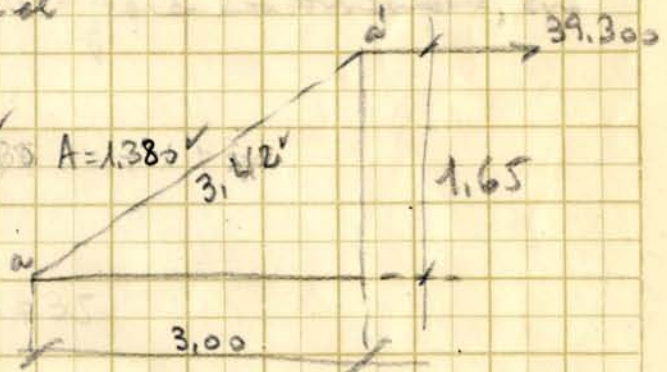 a'
39.300
A=1.380
3,42
1,65
a
3,00